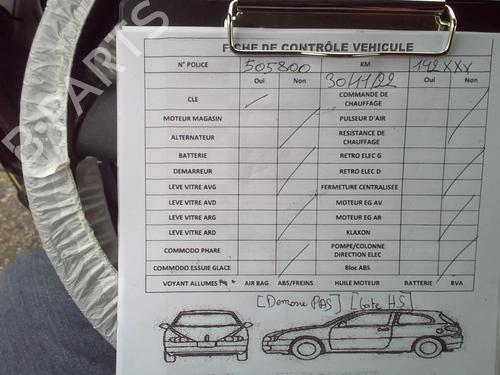 FICHE DE CONTRÔLE VEHICULE
N° POLICE 505800 KM 192XXX
Oui Non 30/11/22 Oui Non
CLE COMMANDE DE CHAUFFAGE
MOTEUR MAGASIN PULSEUR D'AIR
ALTERNATEUR RESISTANCE DE CHAUFFAGE
BATTERIE RETRO ELEC G
DEMARREUR RETRO ELEC D
LEVE VITRE AVG FERMETURE CENTRALISEE
LEVE VITRE AVD MOTEUR EG AV
LEVE VITRE ARG MOTEUR EG AR
LEVE VITRE ARD KLAXON
COMMODO PHARE POMPE/COLONNE DIRECTION ELEC
COMMODO ESSUIE GLACE Bloc ABS
VOYANT ALLUMES AIR BAG ABS/FREINS HUILE MOTEUR BATTERIE BVA
[Demarre PAS] [Boite HS]
B-PARTS